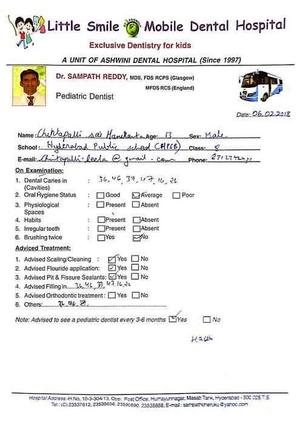 Little Smile Mobile Dental Hospital
Exclusive Dentistry for kids
A UNIT OF ASHWINI DENTAL HOSPITAL (Since 1997)
Dr. SAMPATH REDDY, MDS, FDS RCPS (Glasgow)
MFDS RCS (England)
Pediatric Dentist
Date: 06.02.2018
Name: Age: 13 Sex: Male
School: Hyderabad Public school Class: 8
E-mail: @gmail.com Ph:
On Examination:
1. Dental Caries in (Cavities) : 36, 46, 37, 47, 16, 26
2. Oral Hygiene Status : Good Average Poor
3. Physiological Spaces : Present Absent
4. Habits : Present Absent
5. Irregular teeth : Present Absent
6. Brushing twice : Yes No
Adviced Treatment:
1. Advised Scaling/Cleaning : Yes No
2. Advised Flouride application: Yes No
3. Advised Pit & Fissure Sealants: Yes No
4. Advised Filling in 36, 46, 37, 47, 16, 26
5. Advised Orthodontic treatment: Yes No
6. Others:
Note: Advised to see a pediatric dentist every 3-6 months Yes No
Hospital Address: H.No. 10-3-304/13, Opp. Post Office, Humayunnagar, Masab Tank, Hyderabad - 500 028 T.S.